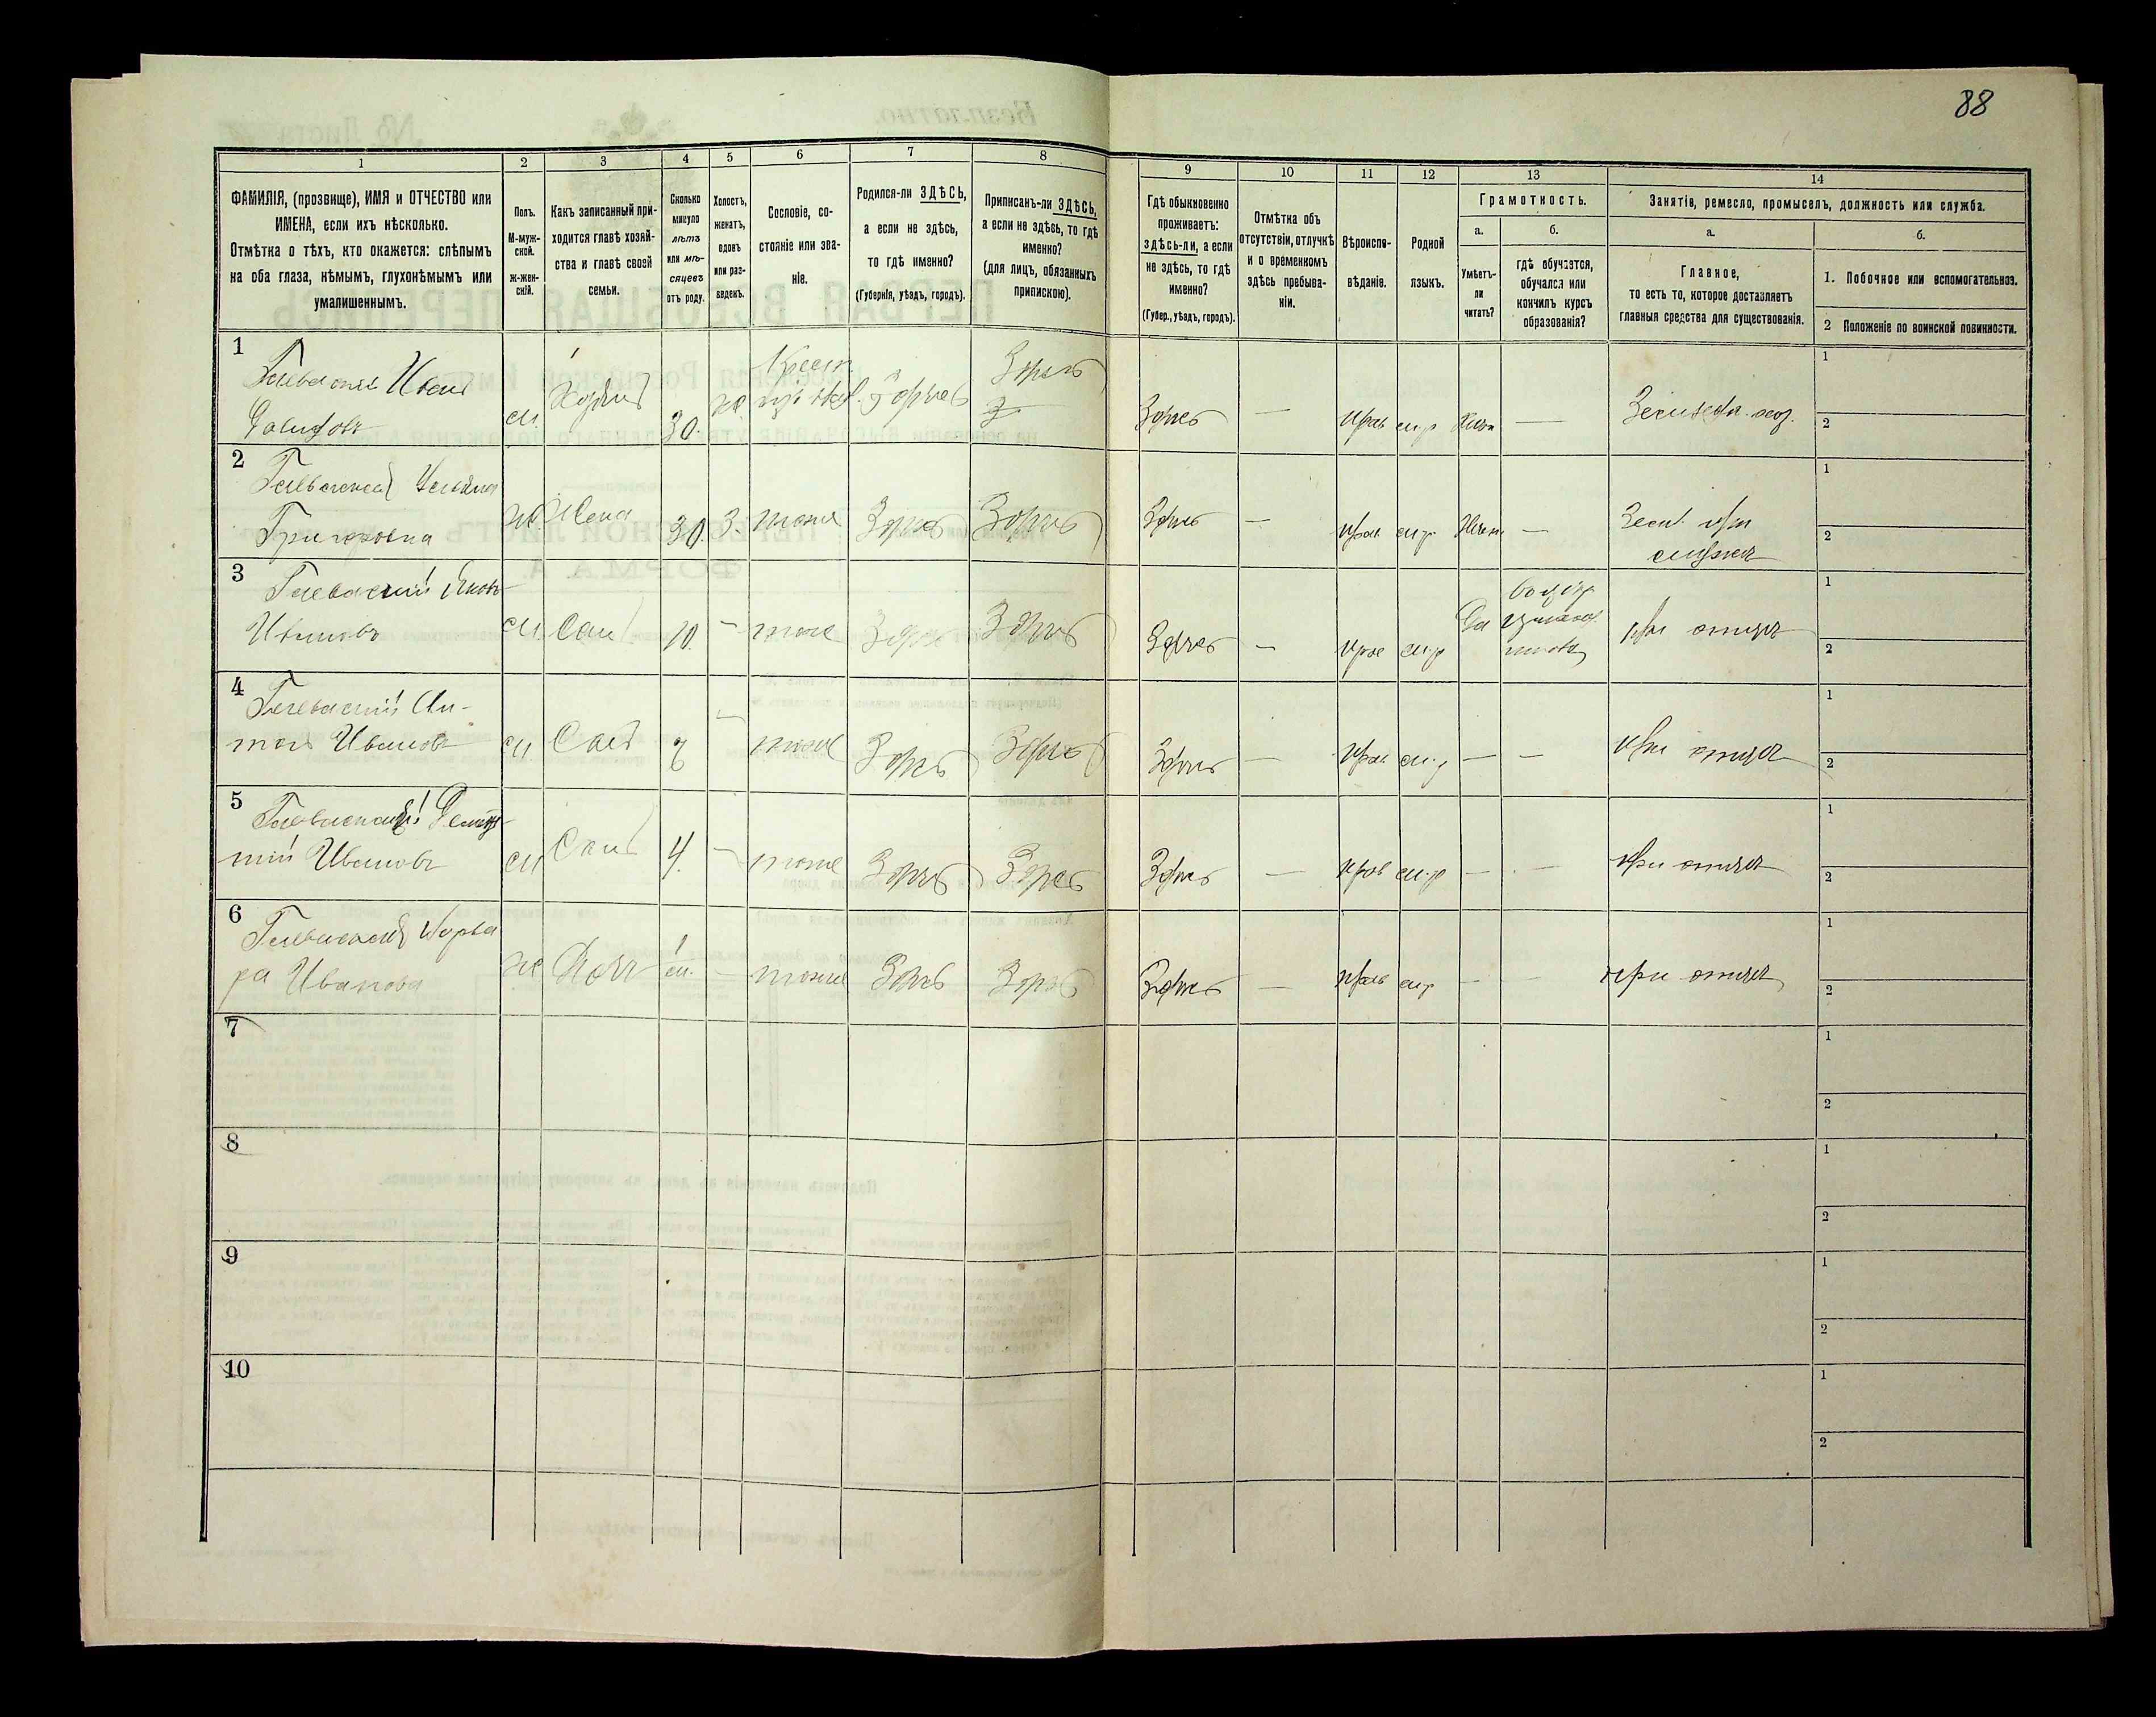 88
1
2
3
4
5
6
7
8
9
10
11
12
13
14
ФАМИЛІЯ, (прозвище), ИМЯ и ОТЧЕСТВО или
ИМЕНА, если ихъ нѣсколько.
Отмѣтка о тѣхъ, кто окажется: слѣпымъ
на оба глаза, нѣмымъ, глухонѣмымъ или
умалишеннымъ.
Полъ.
М-муж-
ской.
ж-жен-
скій.
Какъ записанный при-
ходится главѣ хозяй-
ства и главѣ своей
семьи.
Сколько
минуло
лѣтъ
или мѣ-
сяцевъ
отъ роду.
Холостъ,
женатъ,
вдовъ
или раз-
веденъ.
Сословіе, со-
стояніе или зва-
ніе.
Родился-ли ЗДѢСЬ,
а если не здѣсь,
то гдѣ именно?
(Губернія, уѣздъ, городъ).
Приписанъ-ли ЗДѢСЬ,
а если не здѣсь, то гдѣ
именно?
(для лицъ, обязанныхъ
припискою).
Гдѣ обыкновенно
проживаетъ:
здѣсь-ли, а если
не здѣсь, то гдѣ
именно?
(Губер., уѣздъ, городъ).
Отмѣтка объ
отсутствіи, отлучкѣ
и о временномъ
здѣсь пребыва-
ніи.
Вѣроиспо-
вѣданіе.
Родной
языкъ.
Грамотность.
а.
Умѣетъ-
ли
читать?
б.
гдѣ обучается,
обучался или
кончилъ курсъ
образованія?
Занятіе, ремесло, промыселъ, должность или служба.
а.
Главное,
то есть то, которое доставляетъ
главныя средства для существованія.
б.
1. Побочное или вспомогательное.
2 Положеніе по воинской повинности.
1
Иванъ
м
30
Крест.
Здѣсь
Здѣсь
Здѣсь
прав
м.р
1
2
2
ж
Жена
30
З.
тоже
Здѣсь
Здѣсь
Здѣсь
—
прав
м.р
—
при
мужѣ
1
2
3
Яковъ
Ивановъ
м
Сынъ
10.
—
тоже
Здѣсь
Здѣсь
Здѣсь
—
прав
м.р
Да
при отцѣ
1
2
4
Ан-
тонъ Ивановъ
м
Сынъ
—
тоже
Здѣсь
Здѣсь
Здѣсь
—
прав
м.р
—
—
при отцѣ
1
2
5
Ивановъ
м
Сынъ
4.
—
тоже
Здѣсь
Здѣсь
Здѣсь
—
прав
м.р
—
—
при отцѣ
1
2
6
Варва
ра Иванова
ж
Дочь
1
м.
—
тоже
Здѣсь
Здѣсь
Здѣсь
—
прав
м.р
—
—
при отцѣ
1
2
7
1
2
8
1
2
9
1
2
10
1
2